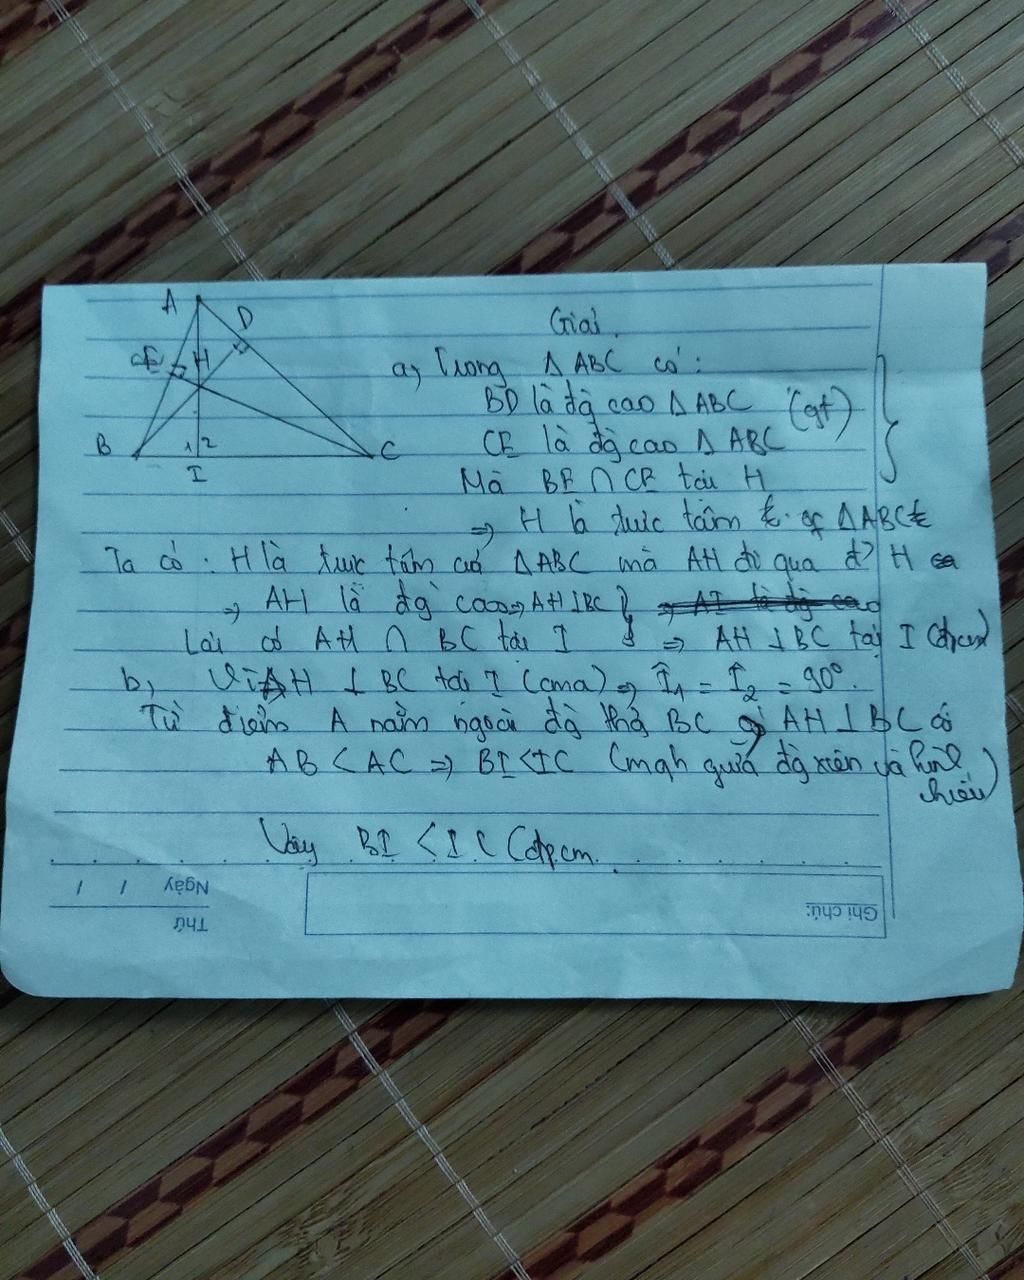 A
D
E
H
B
1
2
C
I
Giải
a, Trong Δ ABC có:
BD là đg cao Δ ABC (gt)
CE là đg cao Δ ABC
Mà BE ∩ CE tại H
=> H là trực tâm of ΔABC
Ta có : H là trực tâm của ΔABC mà AH đi qua đ? H
=> AH là đg cao => AH ⊥ BC } => AI là đg cao
Lại có AH ∩ BC tại I => AH ⊥ BC tại I (đpcm)
b, Vì AH ⊥ BC tại I (cma) => Î1 = Î2 = 90°.
Từ điểm A nằm ngoài đg thg BC AH ⊥ BC có
AB < AC => BI < IC (mqh giữa đg xiên và hình
chiếu)
Vậy BI < IC (đpcm
Ngày / /
Thứ
Ghi chú: